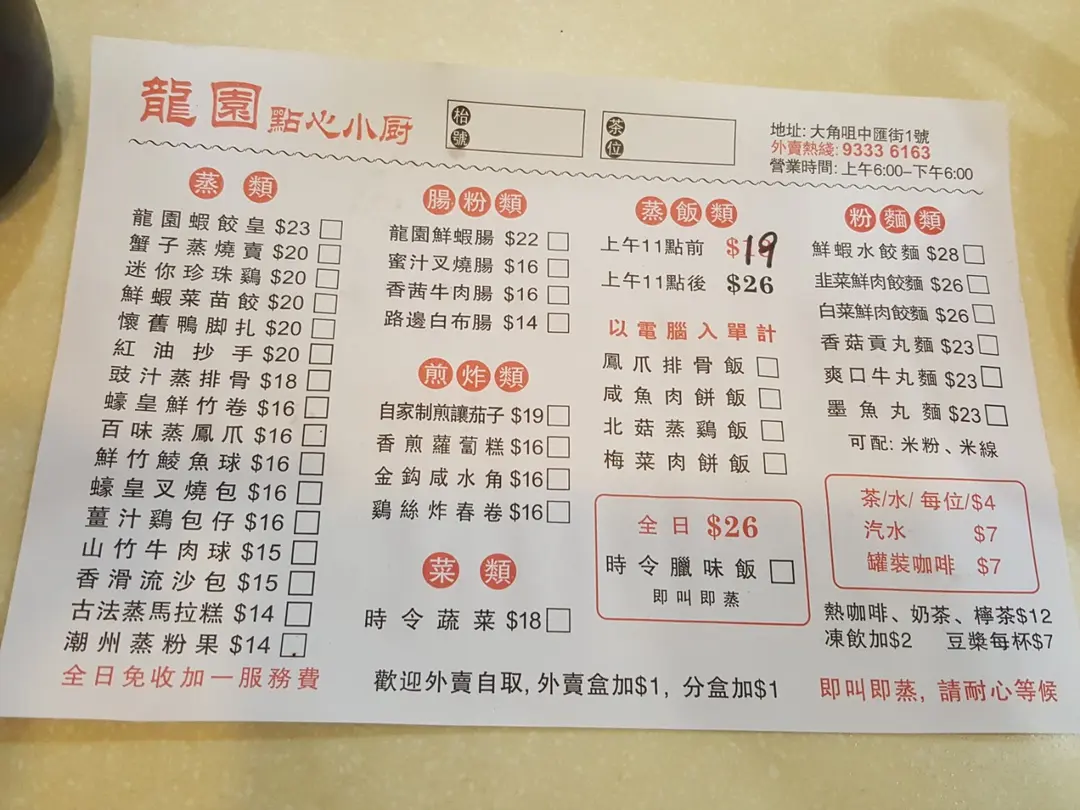 龍園點心小厨
枱號
茶位
地址: 大角咀中匯街1號
外賣熱綫: 9333 6163
營業時間: 上午6:00–下午6:00
蒸類
龍園蝦餃皇 $23
蟹子蒸燒賣 $20
迷你珍珠鷄 $20
鮮蝦菜苗餃 $20
懷舊鴨脚扎 $20
紅油抄手 $20
豉汁蒸排骨 $18
蠔皇鮮竹卷 $16
百味蒸鳳爪 $16
鮮竹鯪魚球 $16
蠔皇叉燒包 $16
薑汁鷄包仔 $16
山竹牛肉球 $15
香滑流沙包 $15
古法蒸馬拉糕 $14
潮州蒸粉果 $14
全日免收加一服務費
腸粉類
龍園鮮蝦腸 $22
蜜汁叉燒腸 $16
香茜牛肉腸 $16
路邊白布腸 $14
煎炸類
自家制煎讓茄子 $19
香煎蘿蔔糕 $16
金鈎咸水角 $16
鷄絲炸春卷 $16
菜類
時令蔬菜 $18
蒸飯類
上午11點前 $19
上午11點後 $26
以電腦入單計
鳳爪排骨飯
咸魚肉餅飯
北菇蒸鷄飯
梅菜肉餅飯
全日 $26
時令臘味飯
即叫即蒸
粉麵類
鮮蝦水餃麵 $28
韭菜鮮肉餃麵 $26
白菜鮮肉餃麵 $26
香菇貢丸麵 $23
爽口牛丸麵 $23
墨魚丸麵 $23
可配: 米粉、米線
茶/水/ 每位/$4
汽水 $7
罐裝咖啡 $7
熱咖啡、奶茶、檸茶$12
凍飲加$2 豆漿每杯$7
歡迎外賣自取, 外賣盒加$1, 分盒加$1
即叫即蒸, 請耐心等候